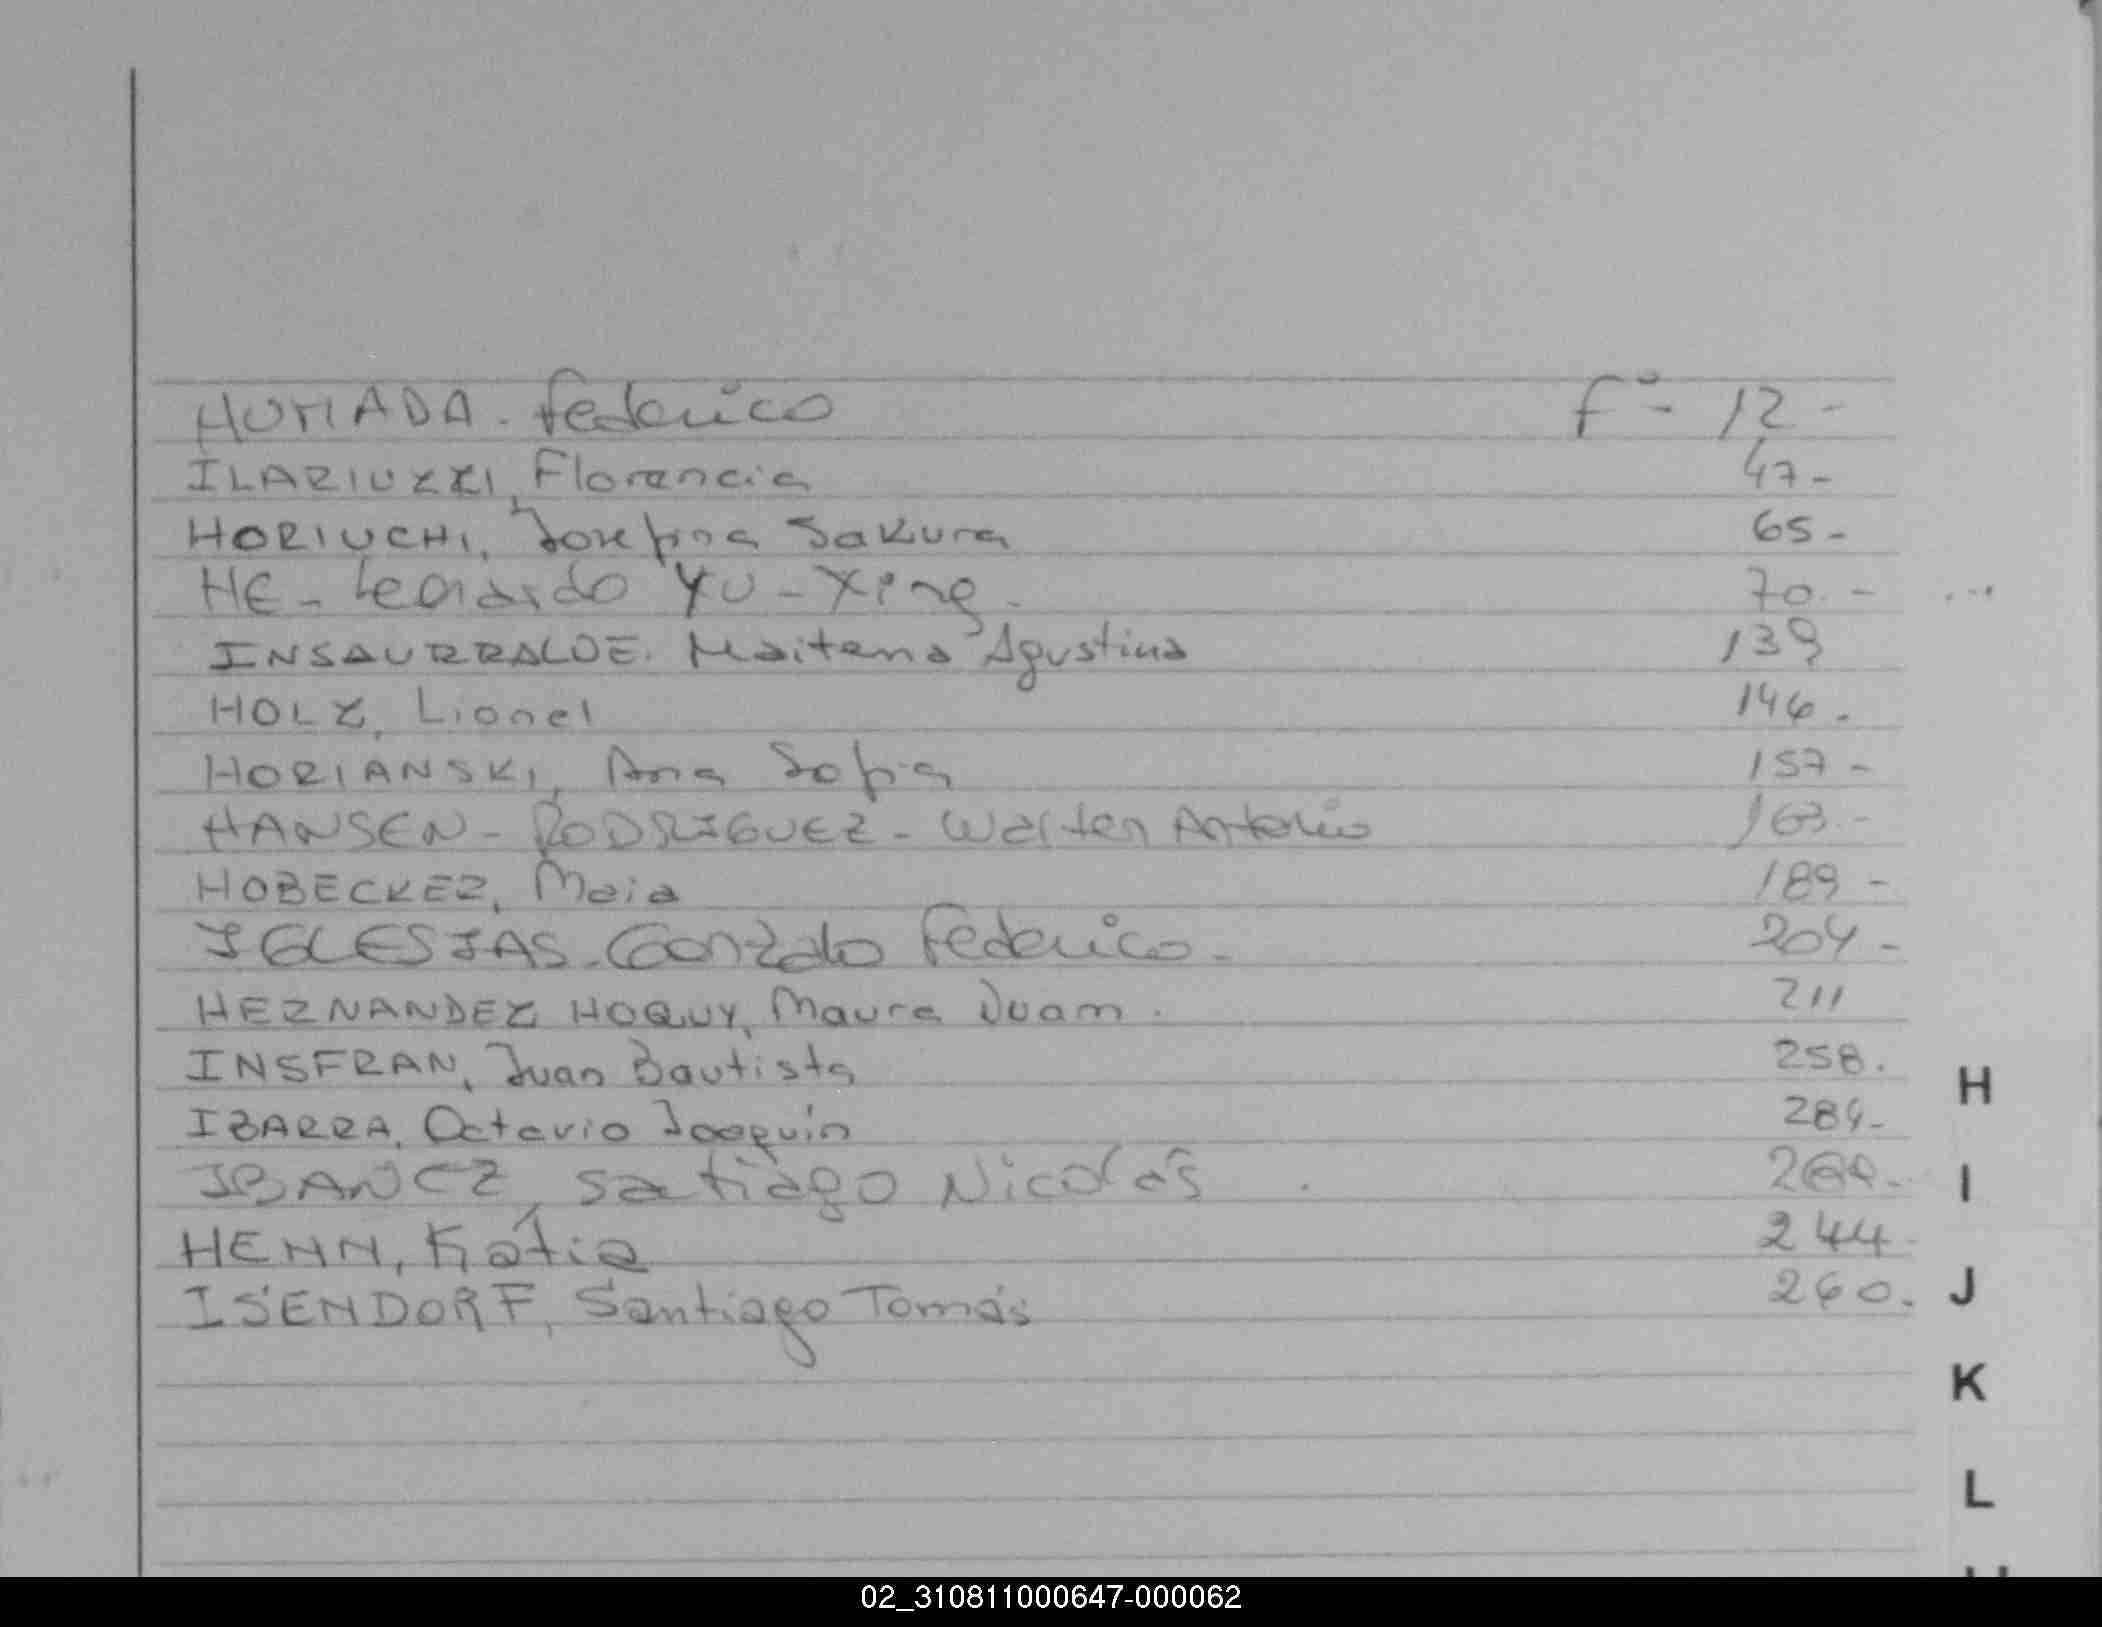 HUMADA. Federico f° - 12 -
ILARIUZZI, Florencia 47 -
HORIUCHI, Josefina Sakura 65 -
HE - Leonardo YU - Xing - 70. -
INSAURRALDE. Maitena Agustina 139
HOLZ, Lionel 146 .
HORIANSKI, Ana Sofia 157 -
HANSEN - RODRIGUEZ - Walter Antonio 163. -
HOBECKER, Maia 189 -
IGLESIAS - Gonzalo Federico - 204 -
HERNANDEZ HOQUY, Maura Juam . 211
INSFRAN, Juan Bautista 258 .
H
IBARRA, Octavio Joaquín 284 -
IBAÑEZ, Satiago Nicolás .
I
HENN, Kátia 244 -
ISENDORF, Santiago Tomás 260 .
J
K
L
02_310811000647-000062